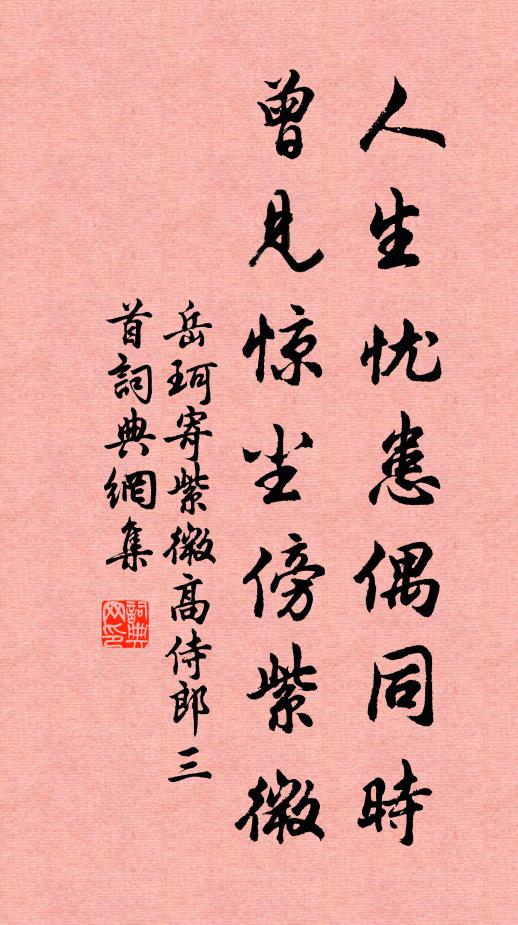 人生忧患偶同時
曾見惊尘傍紫微
岳珂寄紫微高侍郎三
首詞典網集
詞典网印